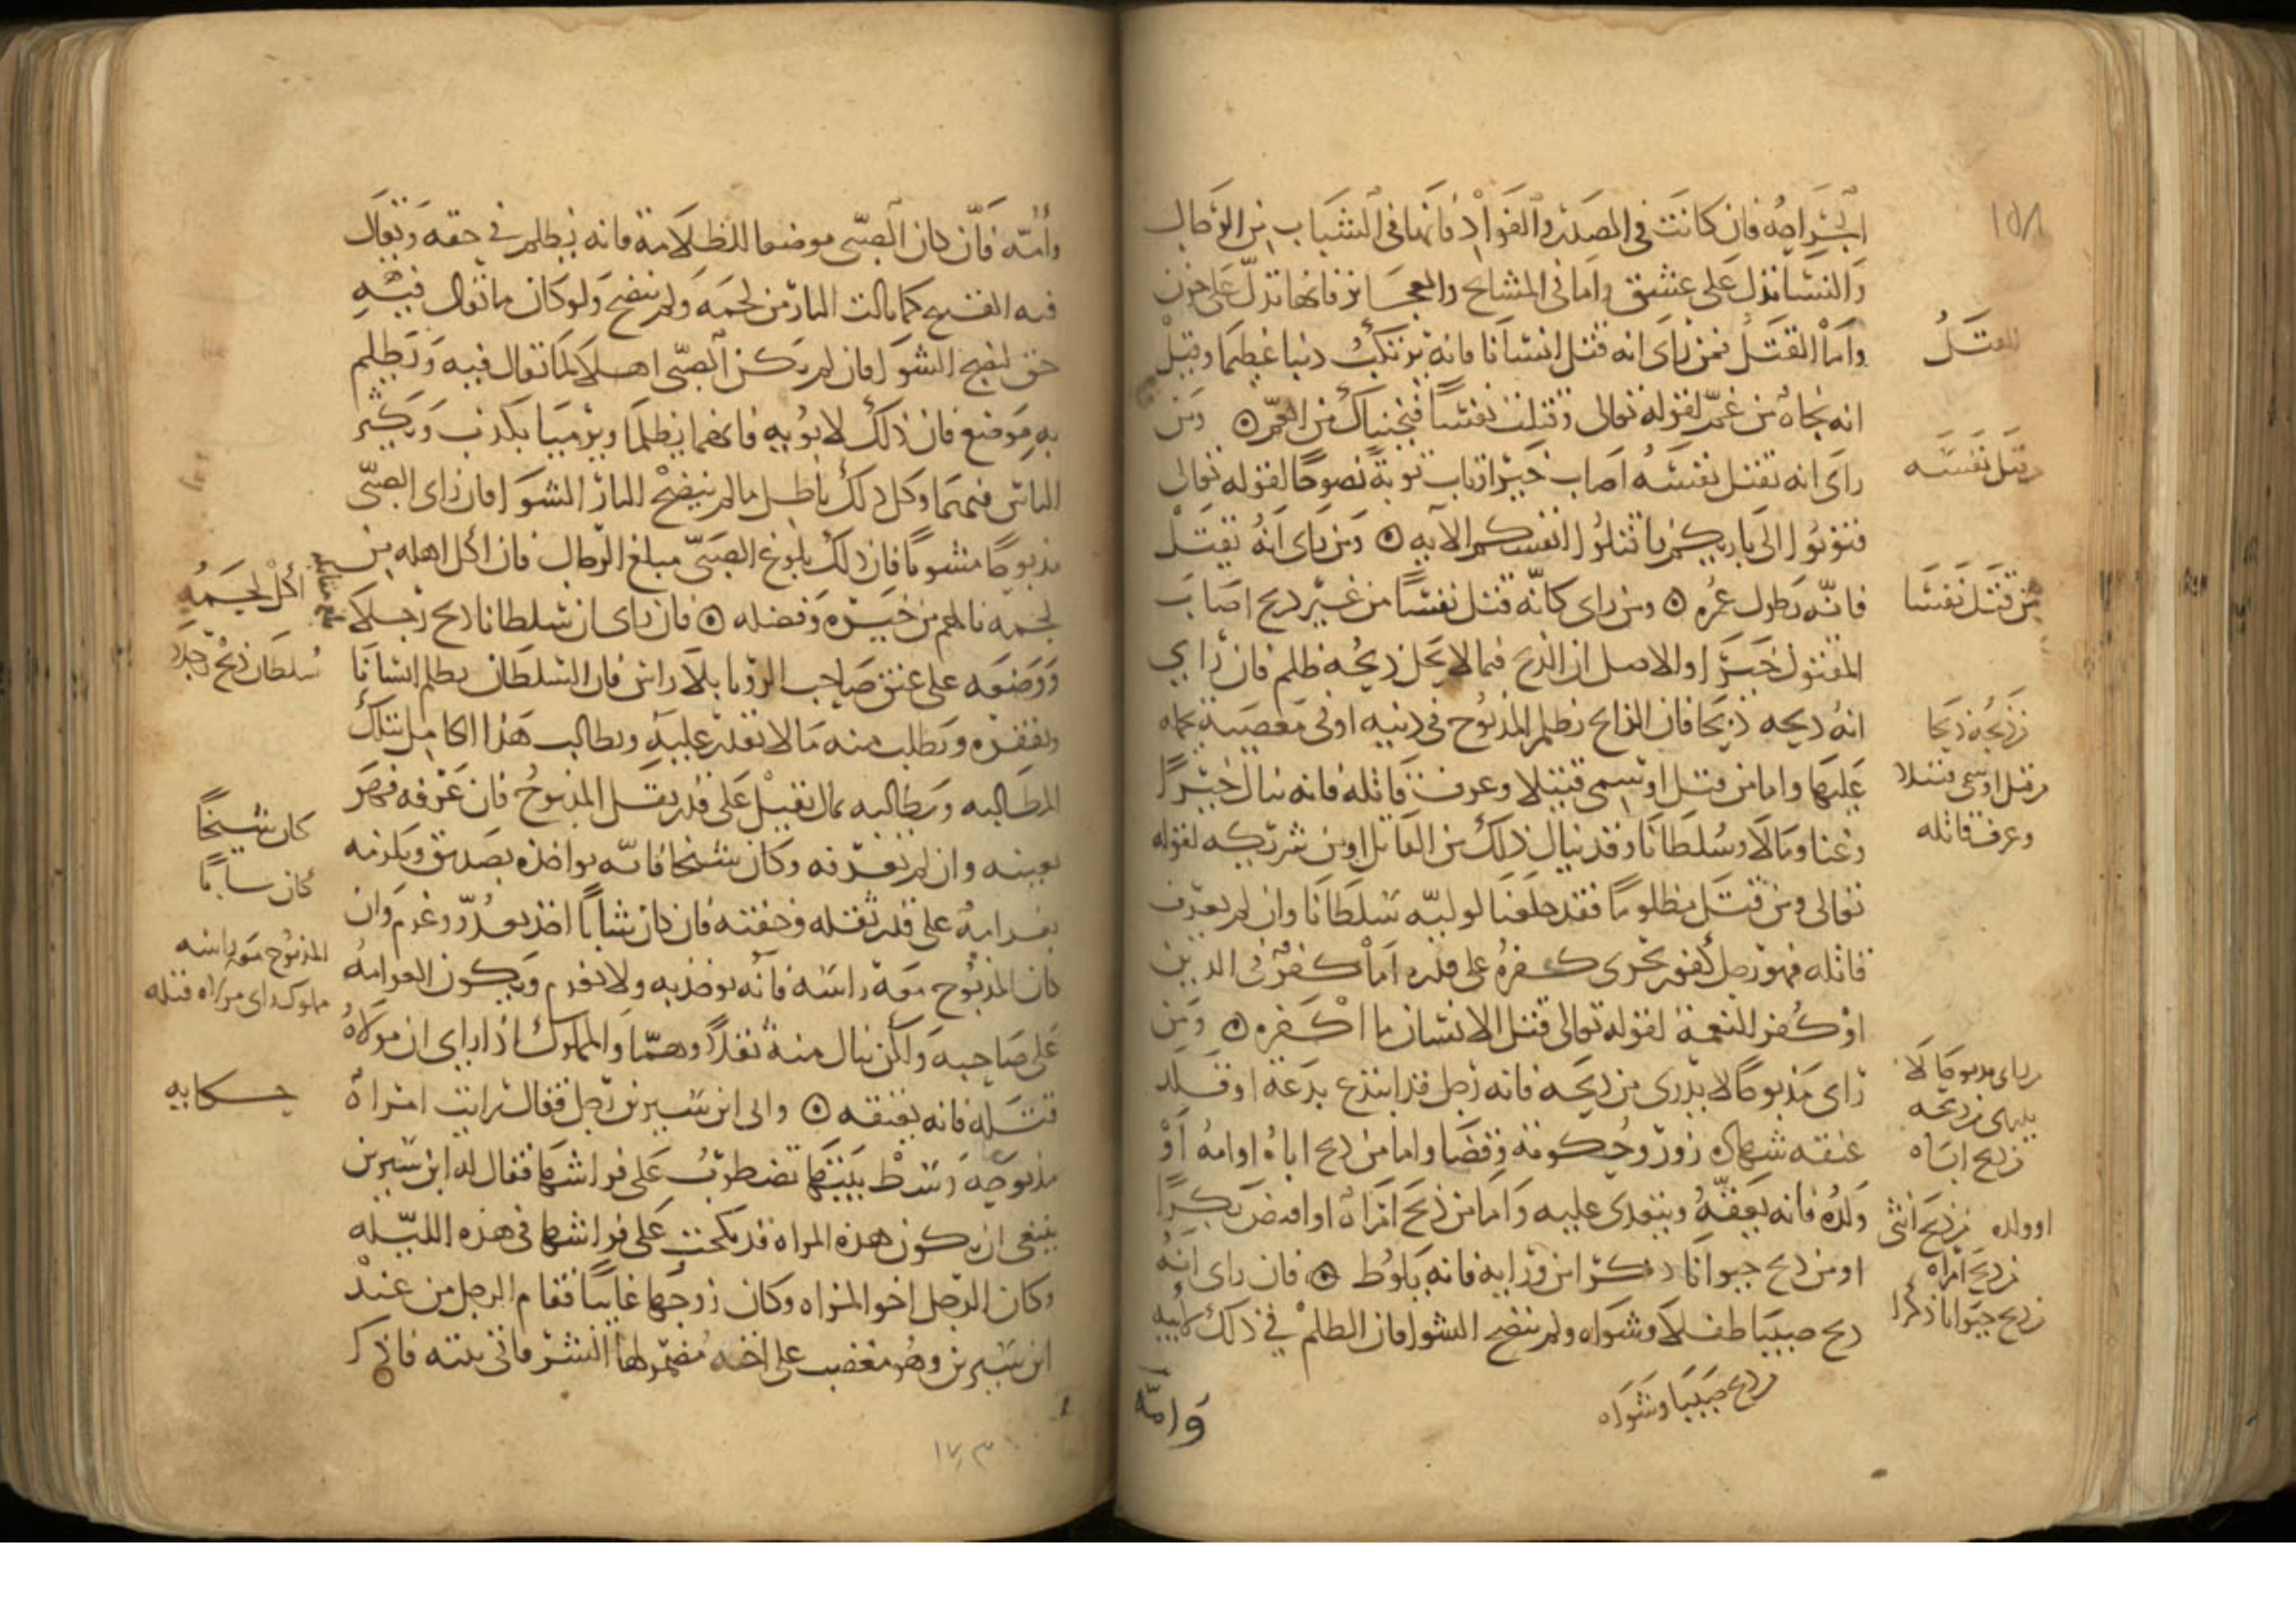 الجراحة فان كانت في الصدر والفواد فانها في الشباب من الرجال
والنسا تدل على عشق واما في المشايخ والعجايز فانها تدل على حزن
واما القتل فمن راى انه قتل انسانا فانه يرتكب ذنبا عظيما وقيل
انه نجاة من غم لقوله تعالى وقتلت نفسا فنجيناك من الغم ومن
راى انه يقتل نفسه اصاب خيرا وتاب توبة نصوحا لقوله تعالى
فتوبوا الى باريكم فاقتلوا انفسكم الايه ومن راى انه يقتل
فانه يطول عمره ومن راى كانه قتل نفسا من غير ذبح اصاب
المقتول خيرا والاصل ان الذبح فيما لا يحل ذبحه ظلم فان راى
انه ذبحه ذبحا فان الذابح يظلم المذبوح في دينه او في معصية يحمله
عليها واما من قتل او سمى قتيلا وعرف قاتله فانه ينال خيرا
وغنا ومالا وسلطانا وقد ينال ذلك من القاتل او من شريكه لقوله
تعالى ومن قتل مظلوما فقد جعلنا لوليه سلطانا وان لم يعرف
قاتله فهو رجل كفور يجرى كفره على قدره اما كفر في الدين
او كفر النعمة لقوله تعالى قتل الانسان ما اكفره ومن
راى مذبوحا لا يدرى من ذبحه فانه رجل قد ابتدع بدعة او قلد
عنقه شهادة زور وحكومة وقضا واما من ذبح اباه او امه او
ولده فانه يعقه ويتعدى عليه واما من ذبح امراة او افتض بكرا
او من ذبح حيوانا ذكرا من ورايه فانه يلوط فان راى انه
ذبح صبيا طفلا وشواه ولم ينضج الشوا فان الظلم في ذلك لابيه
وامه
١٥٨
القتل
من قتل نفسه
من قتل نفسا
من ذبحه ذبحا
من قتل او سمى قتيلا
وعرف قاتله
من راى مذبوحا لا
يدرى من ذبحه
من ذبح اباه
او ولده من ذبح انثى
من ذبح امراة
من ذبح حيوانا ذكرا
من ذبح صبيا وشواه
وامه فان كان الصبي موضعا للظلامة فانه يظلم في حقه ويقال
فيه القبيح كما نالت النار من لحمه ولم ينضج ولو كان ما يقال فيه
حق لنضج الشوا فان لم يكن الصبي اهلا لما يقال فيه ويظلم
به موضع فان ذلك لابويه فانهما يظلما ويرميا بكذب ويكثر
الناس فيهما وكل ذلك باطل ما لم ينضج النار الشوا فان راى الصبي
مذبوحا مشويا فان ذلك بلوغ الصبي مبلغ الرجال فان اكل اهله من
لحمه نالهم من خيره وفضله فان راى ان سلطانا ذبح رجلا
ووضعه على عنق صاحب الرويا بلا راس فان السلطان يظلم انسانا
ويفقره ويطلب منه ما لا يقدر عليه ويطالب هذا الحامل بتلك
المطالبه ويطالبه بمال ثقيل على قدر ثقل المذبوح فان عرفه فهو
بعينه وان لم يعرفه وكان شيخا فانه يواخذه بصديق ويلزمه
بغرامة على قدر ثقله وخفته فان كان شابا اخذ بعدو وغرم وان
كان المذبوح معه راسه فانه يوخذ به ولا يغرم وتكون الغرامة
على صاحبه ولكن ينال منه ثقلا وهما والمملوك اذا راى ان مولاه
قتله فانه يعتقه واتى ابن سيرين رجل فقال رايت امراة
مذبوحة وسط بيتها تضطرب على فراشها فقال له ابن سيرين
ينبغي ان تكون هذه المراه قد نكحت على فراشها في هذه الليله
وكان الرجل اخو المراه وكان زوجها غايبا فقام الرجل من عند
ابن سيرين وهو مغضب على اخته مضمر لها الشر فاتى بيته فاذا
اكل لحمه
سلطان ذبح رجلا
كان شيخا
كان شابا
المذبوح معه راسه
مملوك راى مولاه قتله
حكايه